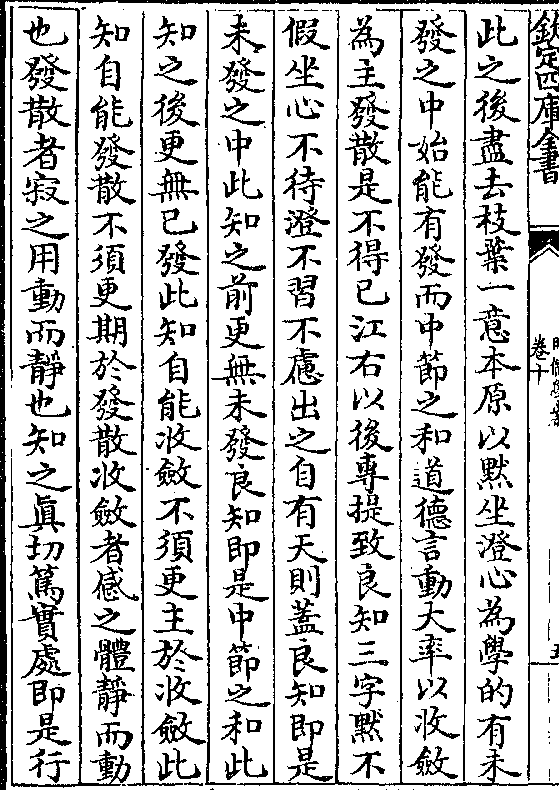 欽定四庫全書
卷十
此之後盡去枝葉一意本原以默坐澄心為學的有未
發之中始能有發而中節之和道德言動大率以收斂
為主發散是不得已江右以後專提致良知三字默不
假坐心不待澄不習不慮出之自有天則蓋良知即是
未發之中此知之前更無未發良知即是中節之和此
知之後更無已發此知自能收斂不須更主於收斂此
知自能發散不須更期於發散收斂者感之體靜而動
也發散者寂之用動而靜也知之真切篤實處即是行